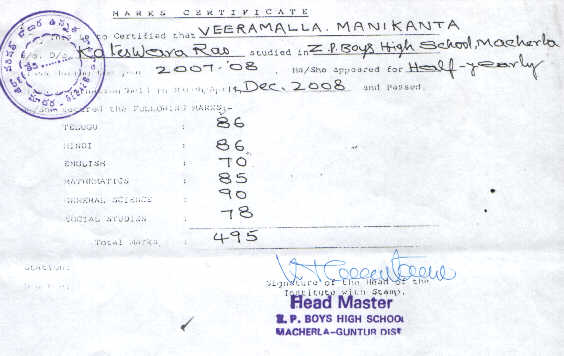 MARKS CERTIFICATE
to Certified that VEERAMALLA. MANIKANTA
Koteswara Rao studied in Z.P. Boys High School, Macherla
2007-'08. He/She appeared for Half-yearly
Dec. 2008 and Passed.
secured the FOLLOWING MARKS:-
TELUGU : 86
HINDI : 86
ENGLISH : 70
MATHEMATICS : 85
GENERAL SCIENCE : 90
SOCIAL STUDIES : 78
Total Marks : 495
Station:
Signature of the Head of the
Institute with Stamp.
Head Master
Z. P. BOYS HIGH SCHOOL
MACHERLA-GUNTUR DIST